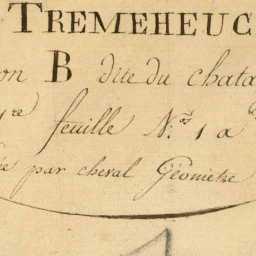 TREMEHEUC
on B dite du chata
1re feuille N.os 1 a
par cheval Géometre